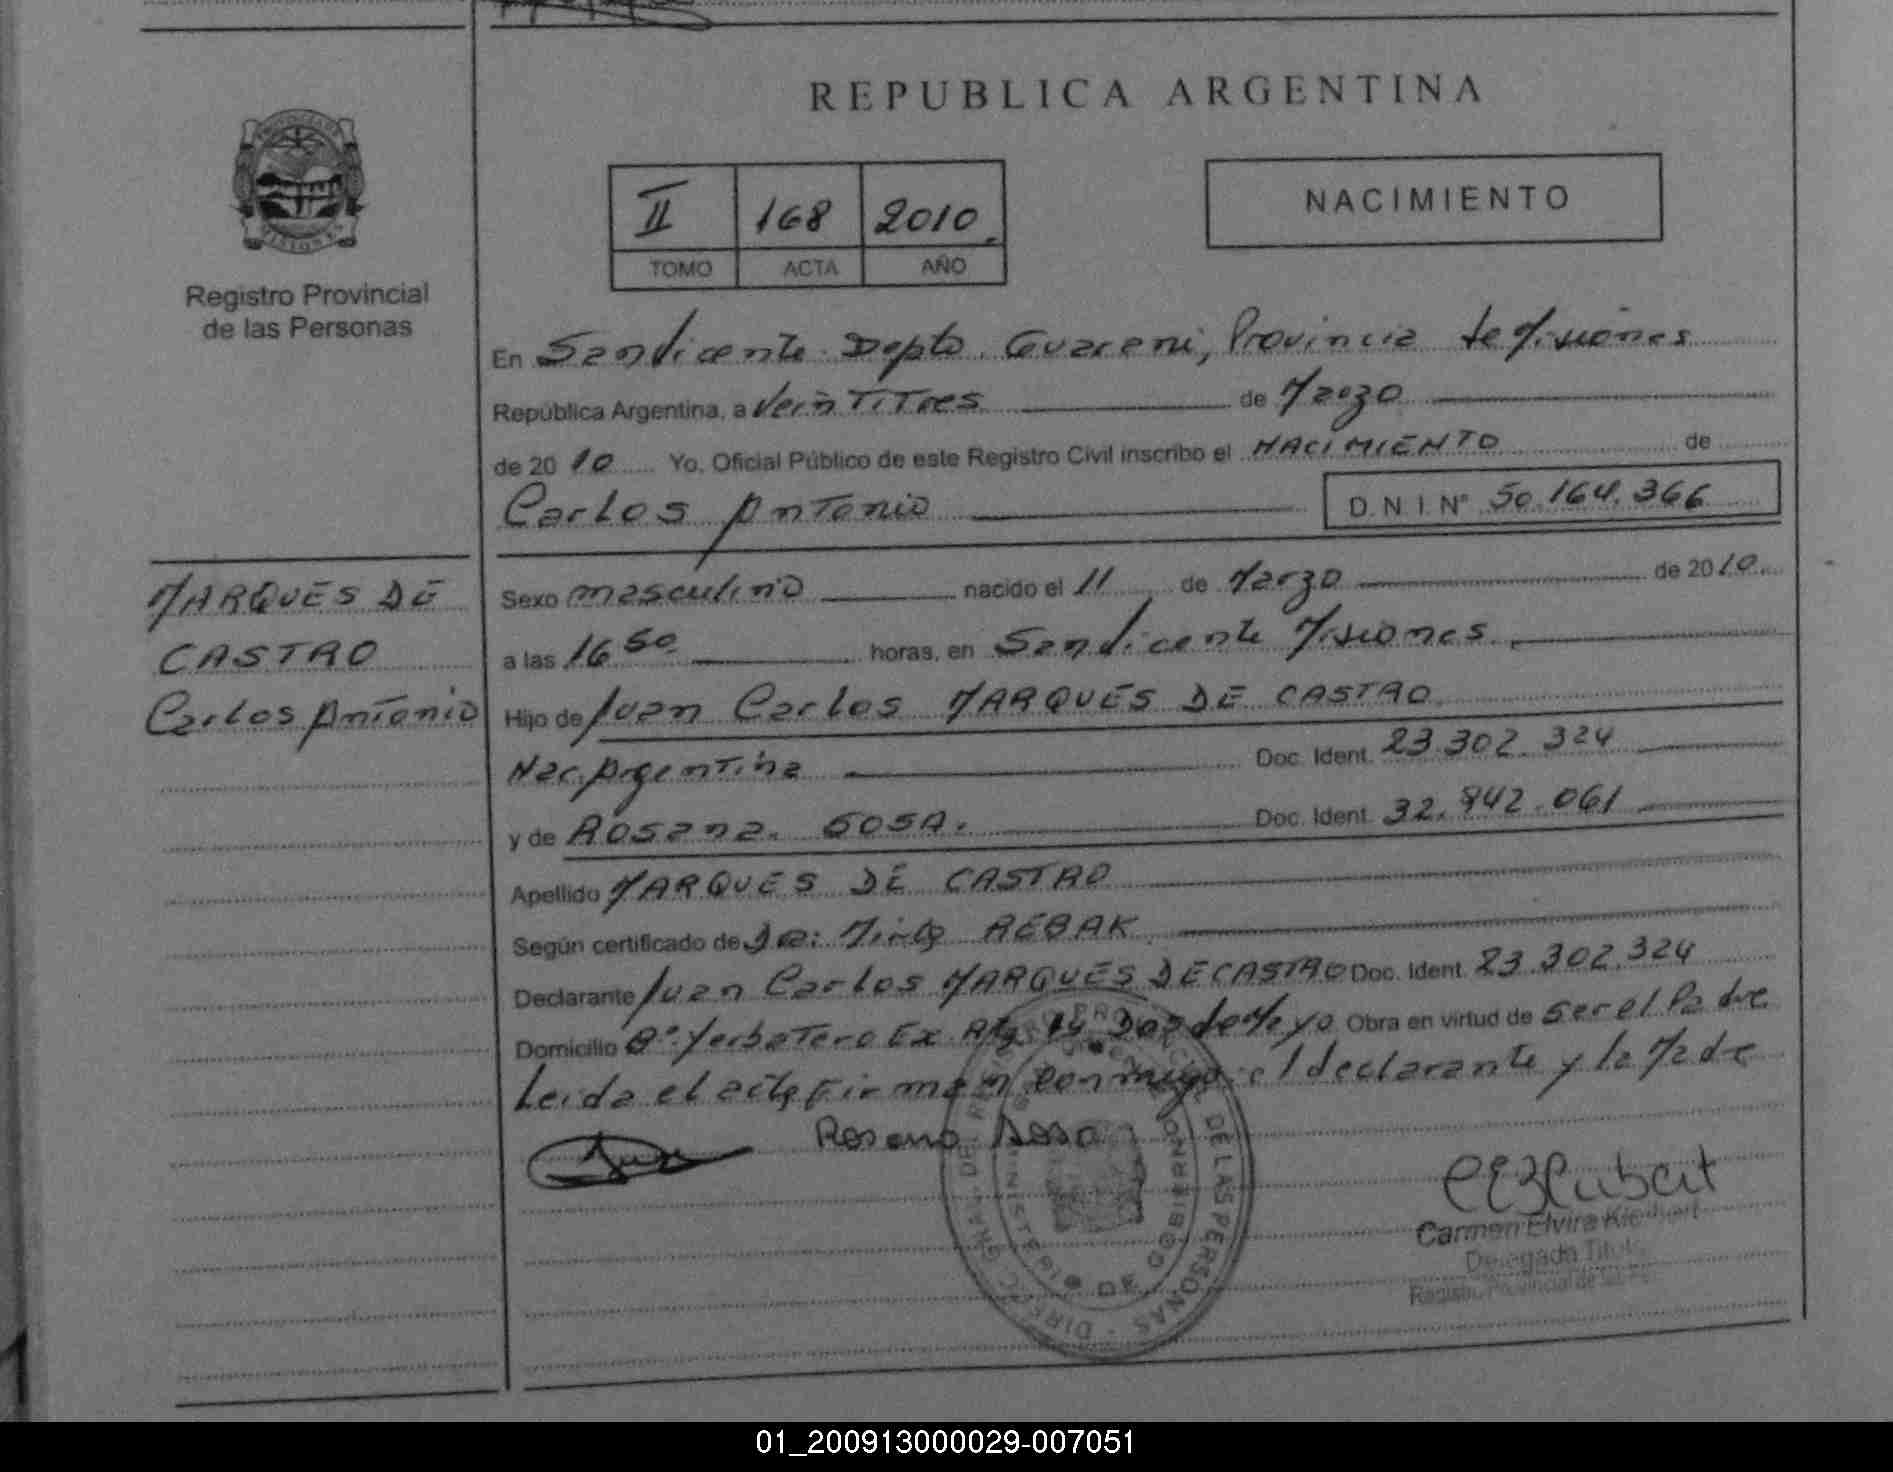 REPUBLICA ARGENTINA
II 168 2010.
TOMO ACTA AÑO
NACIMIENTO
Registro Provincial
de las Personas
En San Vicente Depto. Guarani, Provincia de Misiones
República Argentina, a Veintitres de Marzo
de 2010 Yo, Oficial Público de este Registro Civil inscribo el NACIMIENTO de
Carlos Antonio D.N.I. Nº 50.164.366
MARQUES DE
CASTRO
Carlos Antonio
Sexo masculino nacido el 11 de Marzo de 2010
a las 16 50 horas, en San Vicente Misiones
Hijo de Juan Carlos MARQUES DE CASTRO
Nac. Argentina Doc. Ident. 23.302.324
y de Rosana SOSA. Doc. Ident. 32.942.061
Apellido MARQUES DE CASTRO
Según certificado de Dra: REBAK
Declarante Juan Carlos MARQUES DE CASTRO Doc. Ident. 23.302.324
Domicilio Bº Yerbatero Ex. Dos de Mayo Obra en virtud de ser el Padre
Leida el acta firman conmigo el declarante y la Madre
Rosana Sosa
Carmen Elvira
Delegada Titular
Registro Provincial de las
DIRECC. GRAL. DE REGISTRO PROVINCIAL DE LAS PERSONAS
MINISTERIO DE GOBIERNO
01_200913000029-007051